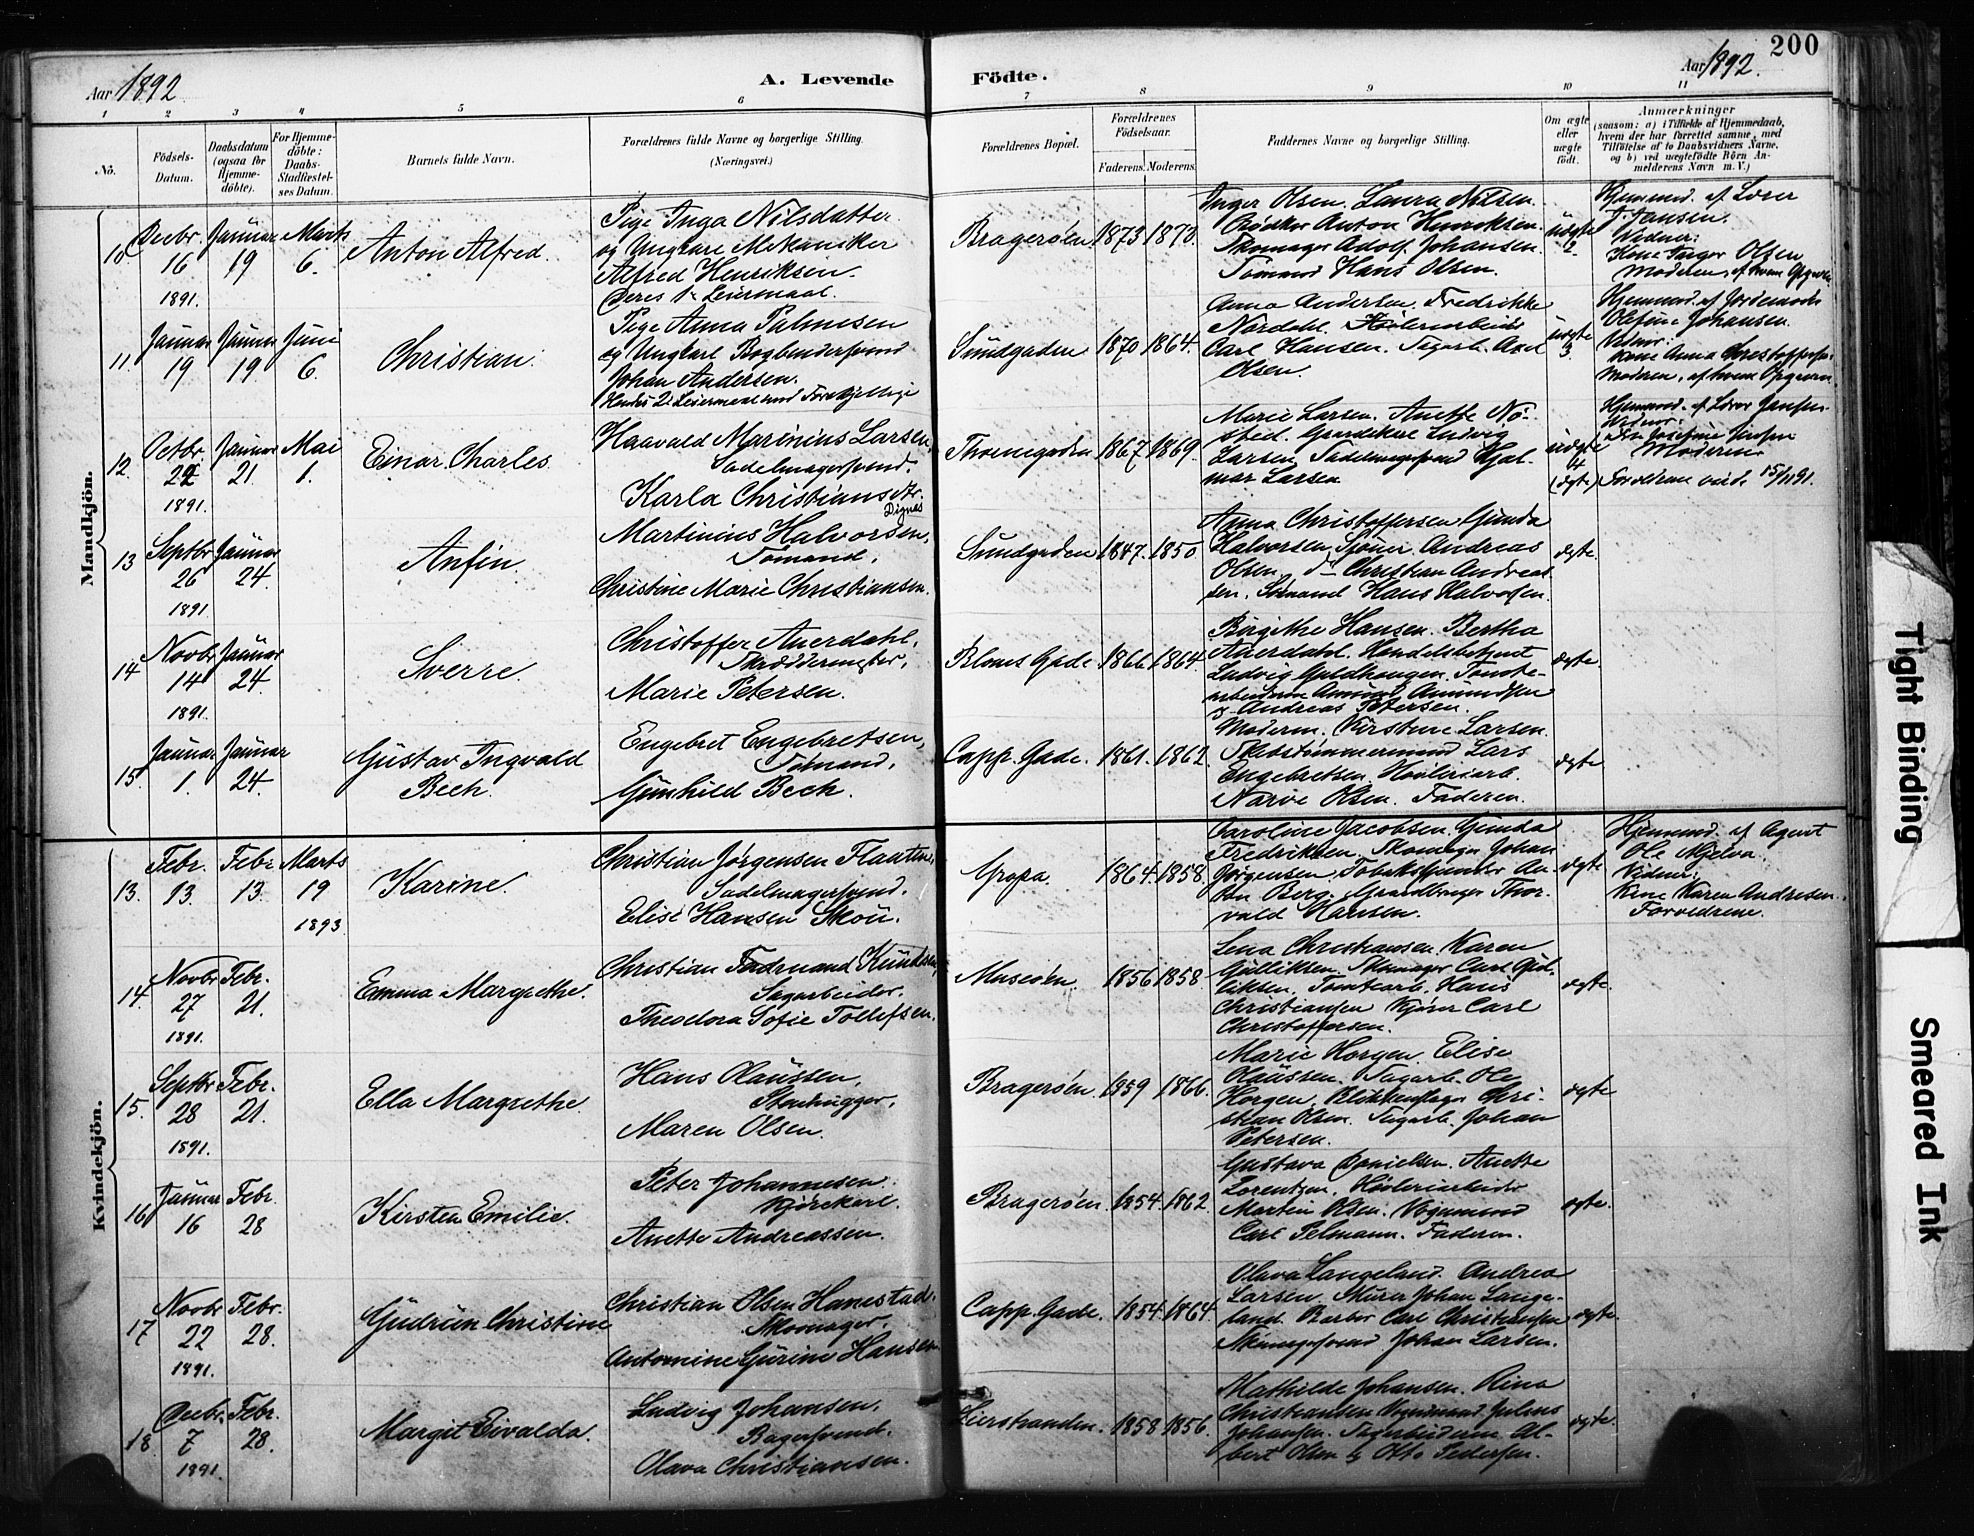 Aar 1892
A. Levende
Födte.
Aar 1892.
200
1 2 3 4 5 6 7 8 9 10 11
No.
Födsels-
Datum.
Daabsdatum
(ogsaa for
Hjemme-
döbte).
For Hjemme-
döbte:
Daabs-
Stadfæstel-
ses Datum.
Barnets fulde Navn.
Forældrenes fulde Navne og borgerlige Stilling.
(Næringsvei.)
Forældrenes Bopæl.
Forældrenes
Födselsaar.
Faderens. Moderens.
Faddernes Navne og borgerlige Stilling.
Om ægte
eller
uægte
födt.
Anmærkninger
(saasom: a) i Tilfælde af Hjemmedaab,
hvem der har forrettet samme, med
Tilföielse af to Daabsvidners Navne,
og b) ved uægtefödte Börn An-
melderens Navn m. V.)
Mandkjön.
10
Decbr.
16
1891.
Januar
19
Marts
6.
Anton Alfred.
Pige Inga Nilsdatter
og Ungkarl Mekaniker
Alfred Henriksen.
Deres 1ste Leiermaal.
Bragerøen
1873
1873.
Inger Olsen. Laura Nilsen.
Anton Henriksen.
Skomager Adolf Johansen
Tomand Hans Olsen.
uægte
2.
Hjemmed. af Lærer
Jansen.
Vidner:
Kone Inger Olsen
Moderen, af hvem Opgaven
11.
Januar
19
Januar
19.
Juni
6.
Christian.
Pige Anna Palmesen
og Ungkarl Bogbindersvend
Johan Andersen.
Hendes 2det Leiermaal med Forskjellige
Sundgaden
1870
1864.
Anna Andersen. Fredrikke
Nordahl. Høvleriarbeider
Carl Hansen. Sagarb. Axel
Olsen.
uægte
3
Hjemmed. af Jordemoder
Olefine Johansen.
Vidner:
Kone Anna Christoffersen
Moderen, af hvem Opgaven.
12.
Octbr.
22
1891.
Januar
21.
Mai
1.
Einar Charles
Haavald Marinius Larsen,
Sadelmagersvend.
Karla Christiansdtr.
Dignes
Thornegaden
1867
1869.
Marie Larsen. Anette Nø-
sted. Ludvig
Larsen. Sadelmagersvend Hjal-
mar Larsen
uægte
4
(ægte)
Hjemmed. af Lærer Jansen.
Vidner:
Moderen
Forældrene viede 15/11 91.
13
Septbr
26
1891
Januar
24.
Anfin.
Martinius Halvorsen,
Tomand.
Christine Marie Christiansen.
Sundgaden
1847.
1850.
Anna Christoffersen. Gunda
Halvorsen. Andreas
Olsen, do Christian Andreas-
sen. Sømand Hans Halvorsen.
ægte.
14
Novbr
14
1891.
Januar
24.
Sverre.
Christoffer Auerdahl,
Skræddermester,
Marie Petersen.
Bloms Gade
1866
1864
Birgithe Hansen. Bertha
Auerdahl. Handelsbetjent
Ludvig Guldhaugen. Tomte-
arbeiderne Amund Amundsen
& Andreas Petersen.
ægte.
15.
Januar
1.
Januar
24.
Gustav Ingvald
Bech.
Engebret Engebretsen,
Tomand,
Gunhild Bech.
Capp. Gade.
1861.
1862.
Moderen. Kirstine Larsen.
Skibstømmermand Lars
Engebretsen. Høvleriarb.
Narve Olsen. Faderen.
ægte
Kvindekjön.
13.
Febr.
13.
Febr
13.
Marts
19
1893.
Karine.
Christian Jørgensen Flauten,
Sadelmagersvend.
Elise Hansen Skou.
Gropa.
1864.
1858.
Caroline Jacobsen. Gunda
Fredriksen. Skomager Johan
Jørgensen, Tobaksspinder An-
ton Berg. Thor-
vald Hansen.
ægte
Hjemmed. af Agent
Ole Mjelva
Vidner:
Kone Karen Andresen.
Forældrene.
14.
Novbr
27
1891.
Febr.
21.
Emma Margrethe.
Christian Ferdinand Knudsen,
Sagarbeider.
Theodora Sofie Tollefsen.
Museøen.
1856
1858
Lena Christiansen. Karen
Gulliksen. Skomager Carl Gul-
liksen. Tomtearb. Hans
Christiansen Kjører Carl
Christoffersen.
ægte.
15.
Septbr
28
1891.
Febr.
21.
Ella Margrethe.
Hans Olaussen,
Stenhugger,
Maren Olsen.
Bragerøen.
1859
1866.
Marie Horgen. Elise
Olaussen. Sagarb. Ole
Horgen. Blikkenslager Chri-
stian Olsen. Sagarb. Johan
Petersen.
ægte
16
Januar
16
Febr.
28
Kirsten Emilie.
Peter Johannesen.
Kjørekarl.
Anette Andreassen.
Bragerøen
1854.
1862.
Gustava Danielsen. Anette
Lorentzen. Høvleriarbeider
Martin Olsen. Vognmand
Carl Selmann. Faderen.
ægte.
17
Novbr
22
1891.
Febr.
28.
Gudrun Christine
Christian Olsen Hanestad.
Skomager.
Antonine Gurine Hansen
Capp. Gade.
1854.
1864.
Olava Langeland. Andrea
Larsen. Murer Johan Lange-
land. Barber Carl Christensen
Skomagersvend Johan Larsen.
ægte.
18.
Decbr.
7
1891.
Febr.
28.
Margit Eivalda.
Ludvig Johansen.
Bagersvend.
Olava Christiansen.
Lierstranden.
1858
1856.
Mathilde Johansen. Rina
Christiansen Vognmand Julius
Johansen. Sagarbeiderne Al-
bert Olsen & Otto Pedersen.
ægte.
Tight Binding
Smeared Ink